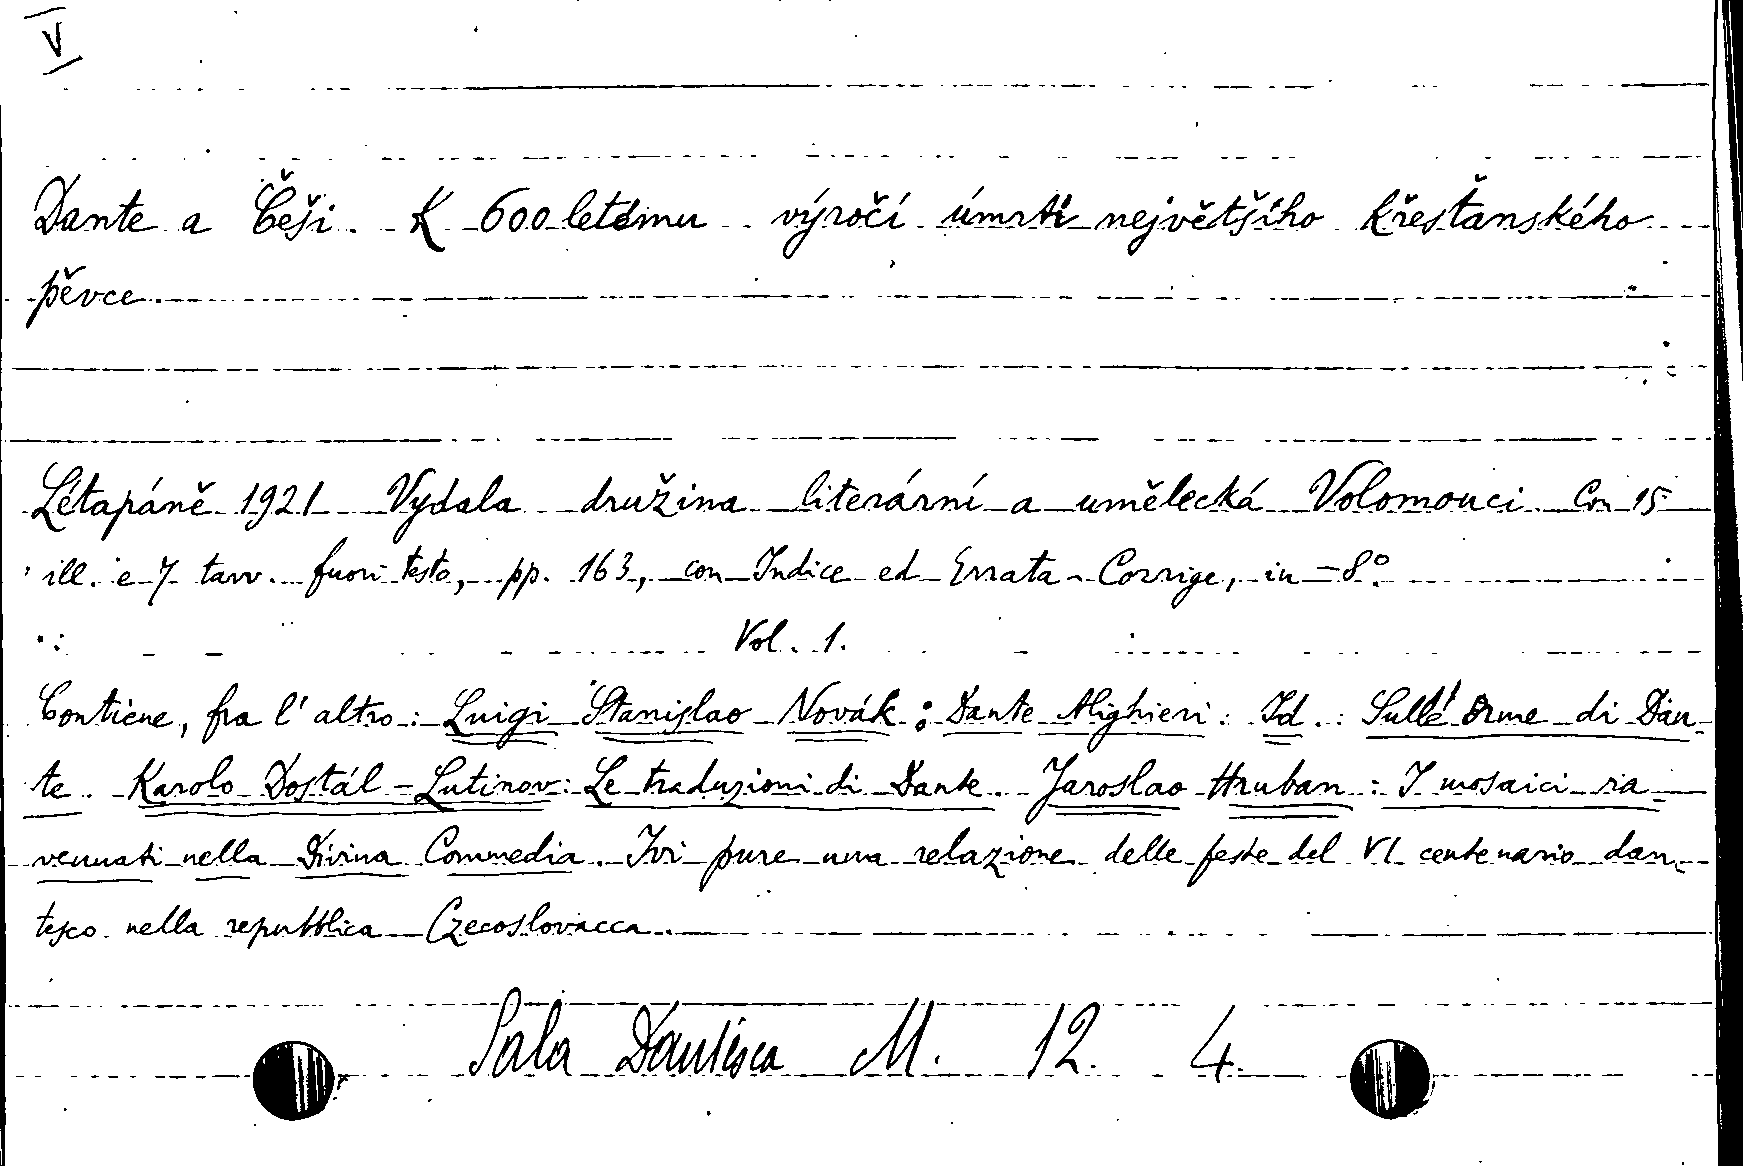 V
Dante a Češi. K 600letému výročí úmrtí největšího křesťanského
pěvce.
Létapáně 1921 Vydala družina literární a umělecká Volomouci. Con 15
ill. e 7 tavv. fuori testo, pp. 163, con Indice ed Errata-Corrige, in-8°.
Vol. 1.
Contiene, fra l'altro: Luigi Stanislao Novák: Dante Alighieri: Id.: Sull'orme di Dan-
te. Karolo Dostál-Lutinov: Le traduzioni di Dante. Jaroslao Hruban: I mosaici ra-
vennati nella Divina Commedia. Ivi pure una relazione delle feste del VI centenario dan-
tesco nella repubblica Czecoslovacca.
Sala Dantesca M. 12. 4.